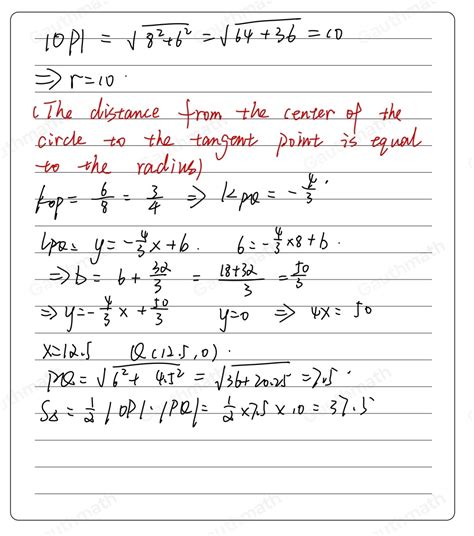 |OP| = √(8²+6²) = √(64+36) = 10
⇒ r=10
(The distance from the center of the
circle to the tangent point is equal
to the radius)
kop = 6/8 = 3/4 ⇒ kPQ = -4/3
lPQ = y = -4/3 x + b. 6 = -4/3 × 8 + b.
⇒ b = 6 + 32/3 = (18+32)/3 = 50/3
⇒ y = -4/3 x + 50/3 y=0 ⇒ 4x = 50
x=12.5 Q(12.5, 0).
PQ = √(6² + 4.5²) = √(36+20.25) = 7.5
S△ = 1/2 |OP|·|PQ| = 1/2 × 7.5 × 10 = 37.5